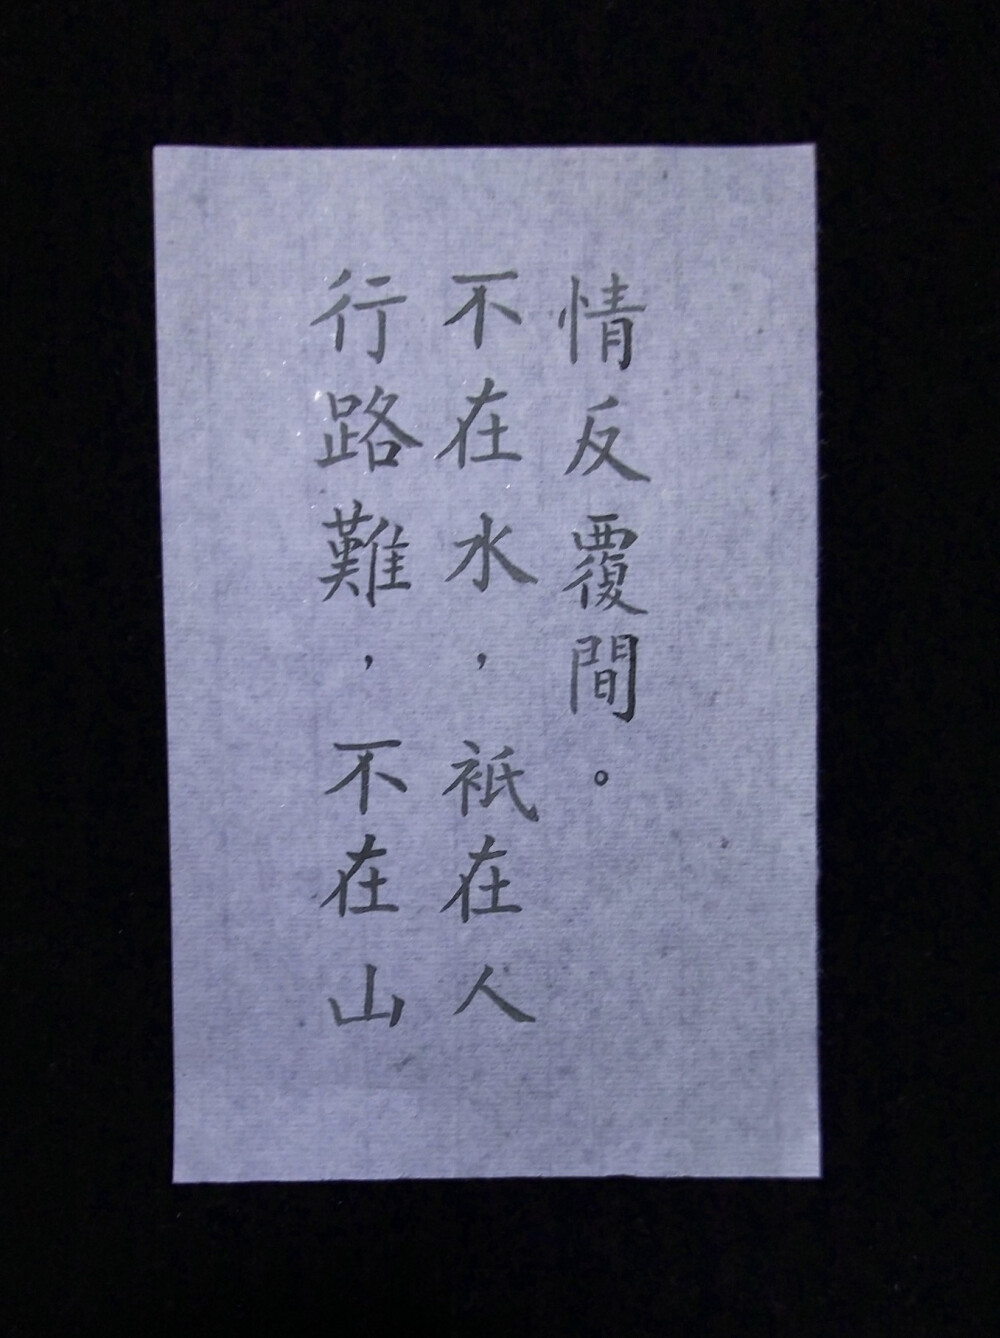 行路難，不在山
不在水，衹在人
情反覆間。